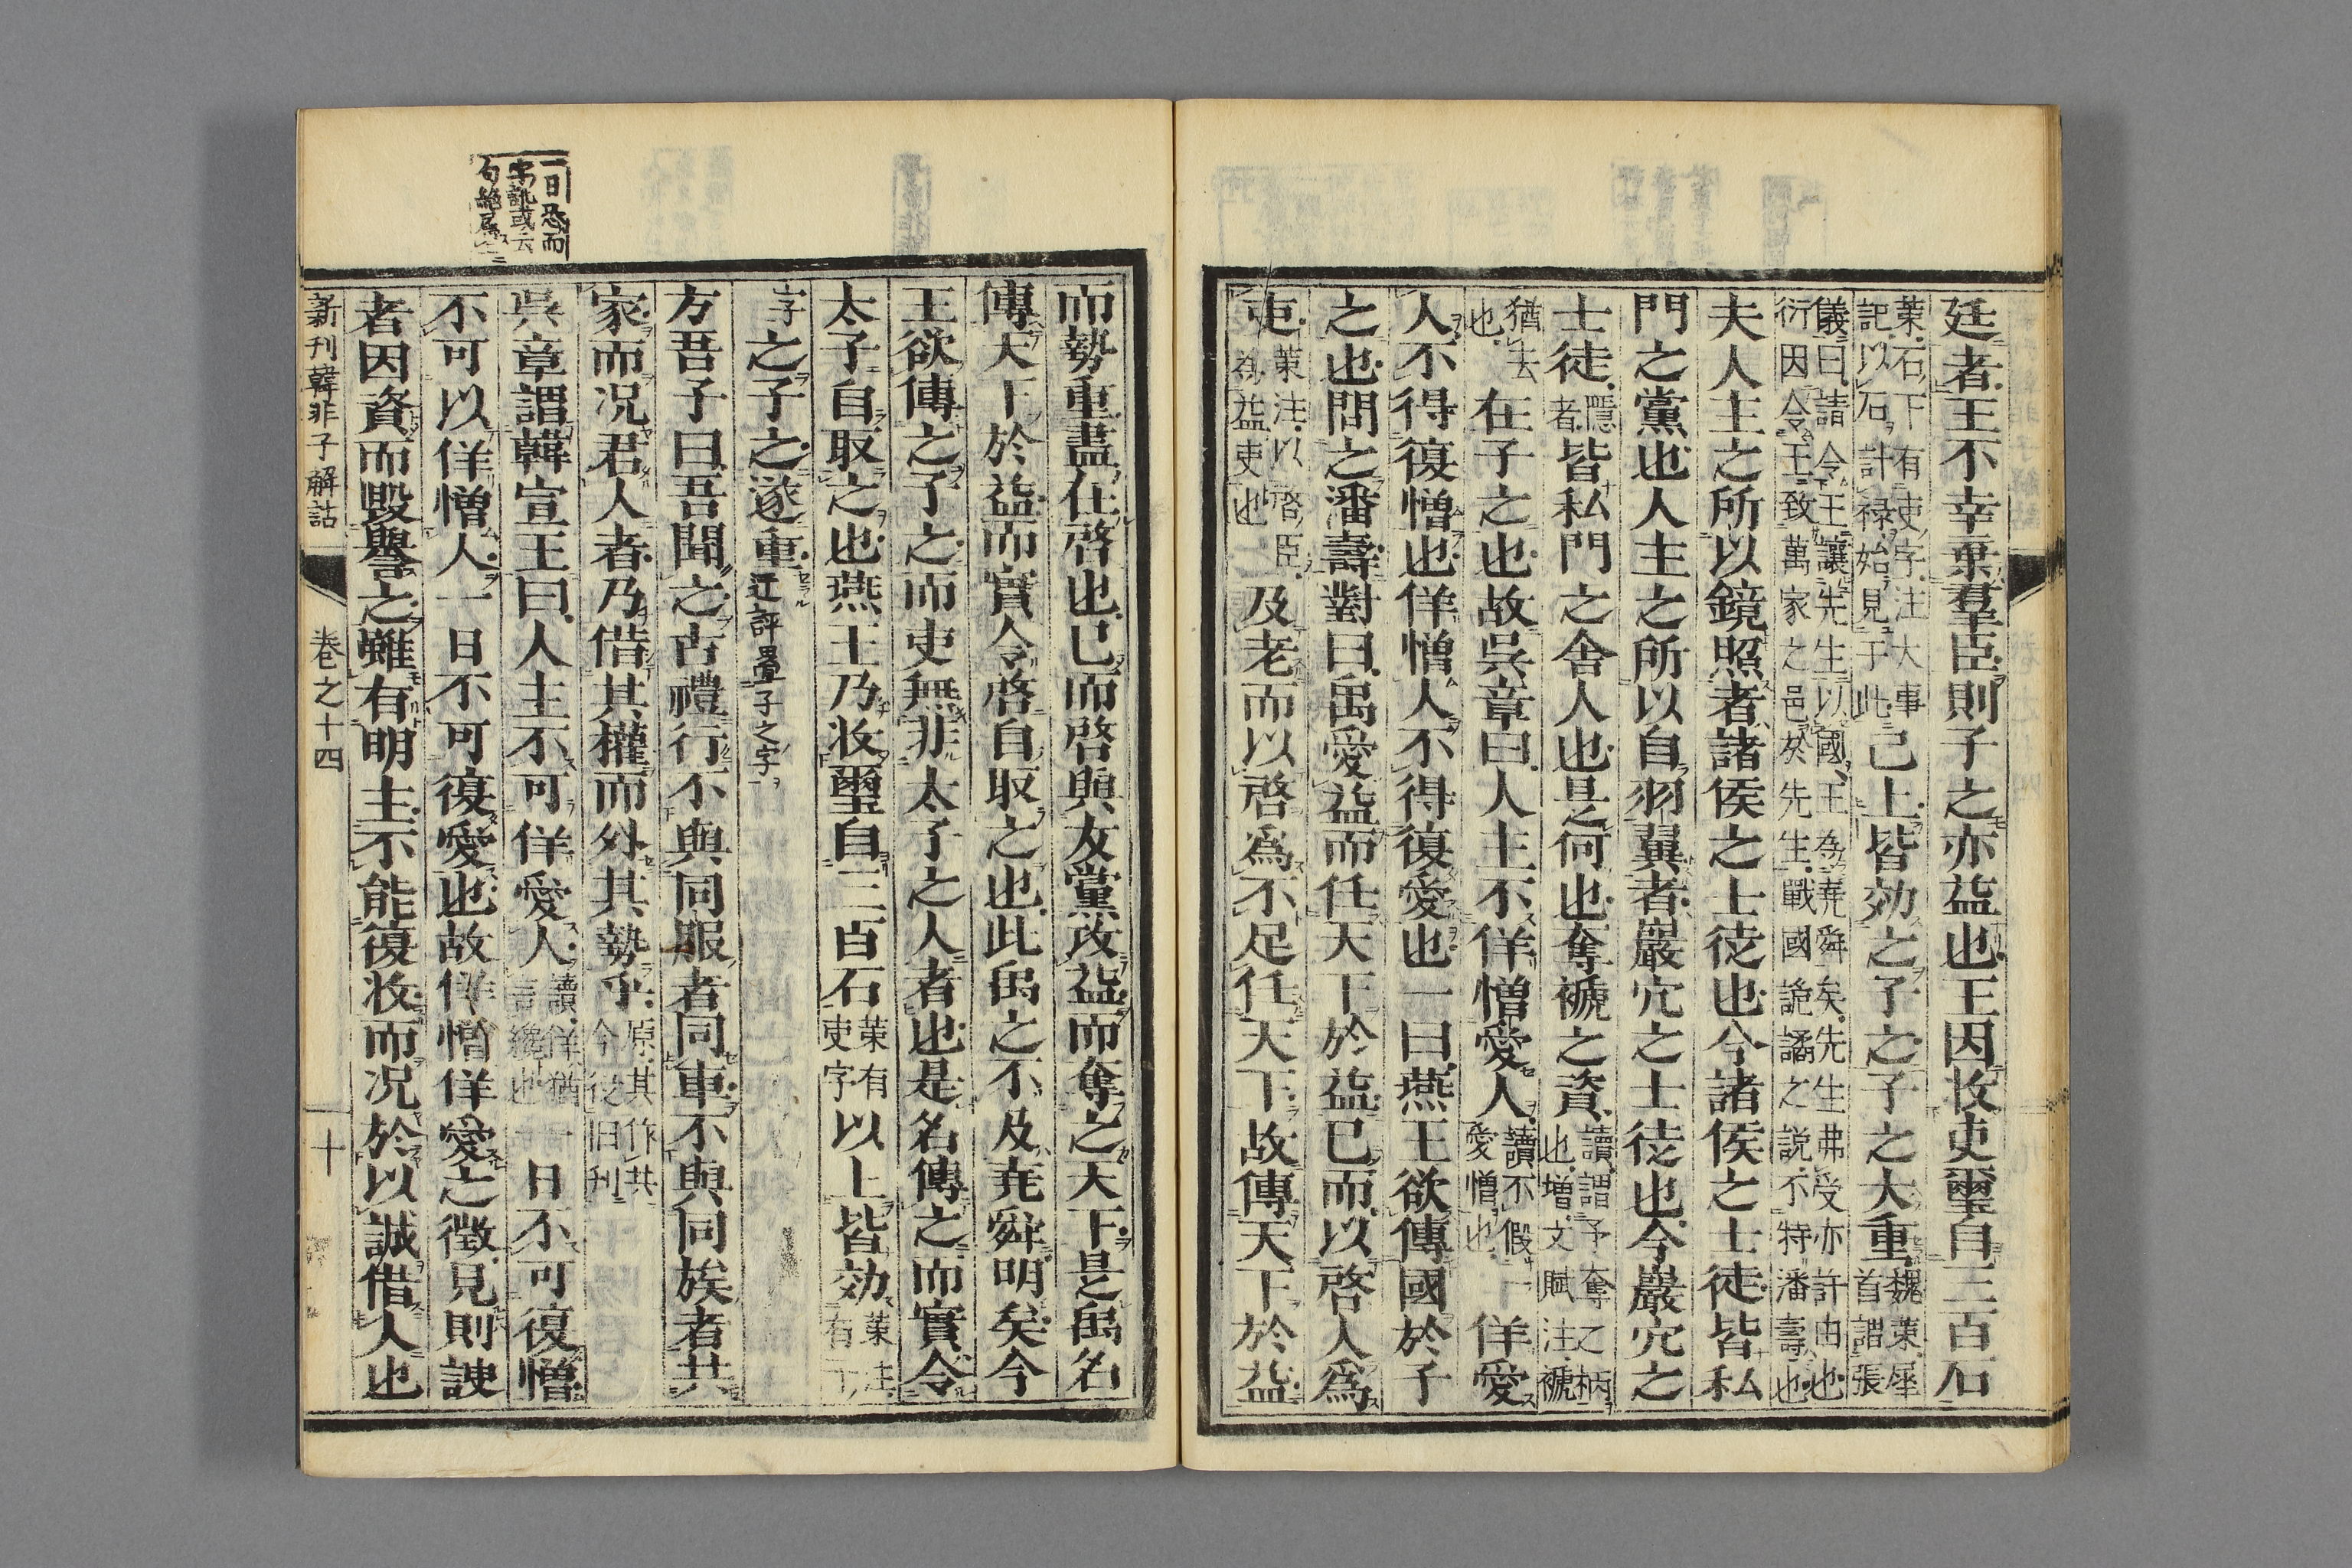 廷者王不幸棄羣臣則子之亦益也王因收吏璽自三百石
菓石下有吏字注大事
記以石計禄始見于此
已上皆効之子之子之大重
魏菓犀
首謂張
儀曰請令王讓先生以國王為堯舜矣先生弗受亦許由也
衍因令王致萬家之邑於先生戰國詭譎之説不特潘壽也
夫人主之所以鏡照者諸侯之士徒也今諸侯之士徒皆私
門之黨也人主之所以自羽翼者巖穴之士徒也今巖穴之
士徒
隱
者
皆私門之舍人也是何也奪褫之資
讀謂予奪之柄
也増文賦注褫
猶去
也
在子之也故吳章曰人主不佯憎愛人
讀不假
愛憎也
佯愛
人不得復憎也佯憎人不得復愛也一曰燕王欲傳國於子
之也問之潘壽對曰禹愛益而任天下於益已而以啓人爲
吏
菓注以啓臣
為益吏也
及老而以啓爲不足任天下故傳天下於益
而勢重盡在啓也已而啓與友黨攻益而奪之天下是禹名
傳天下於益而實令啓自取之也此禹之不及堯舜明矣今
王欲傳之子之而吏無非太子之人者也是名傳之而實令
太子自取之也燕王乃收璽自三百石
菓有
吏字
以上皆効
菓注
有于
字
之子之子之遂重
迂評疊子之字
方吾子曰吾聞之古禮行不與同服者同車不與同族者共
家而况君人者乃借其權而外其勢乎
原其作共
今從旧刊
吳章謂韓宣王曰人主不可佯愛人
讀佯猶
言纔也
一日不可復憎
不可以佯憎人一日不可復愛也故佯憎佯愛之徵見則諛
者因資而毀譽之雖有明主不能復收而况於以誠借人也
一日恐而
字訛或云
句絶屬
新刊韓非子解詁
卷之十四
十